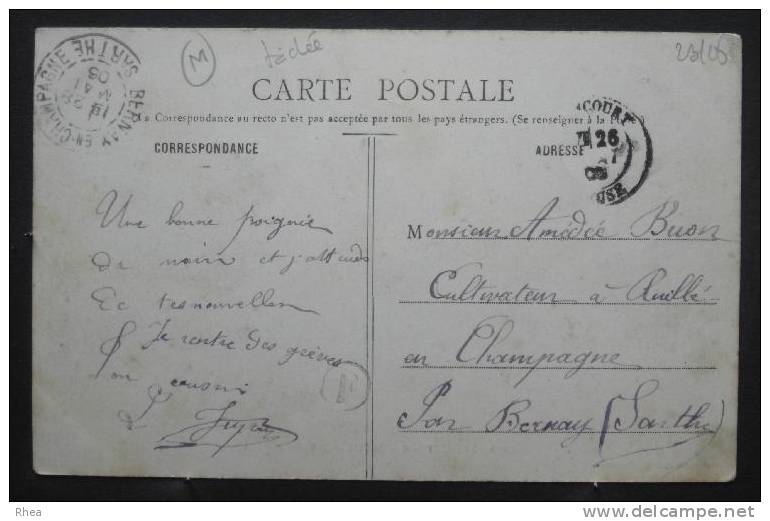 M
tachée
23/05
CARTE POSTALE
La Correspondance au recto n'est pas acceptée par tous les pays étrangers. (Se renseigner à la Poste)
CORRESPONDANCE
ADRESSE
BERNAY EN-CHAMPAGNE SARTHE
COURT
26
USE
Une bonne poignée
de main et j'attends
tes nouvelles
Je rentre des grèves
ton cousin
F
Monsieur Amédée Buon
Cultivateur à Ruillé
en Champagne
Par Bernay (Sarthe)
Rhea
delcampe.net